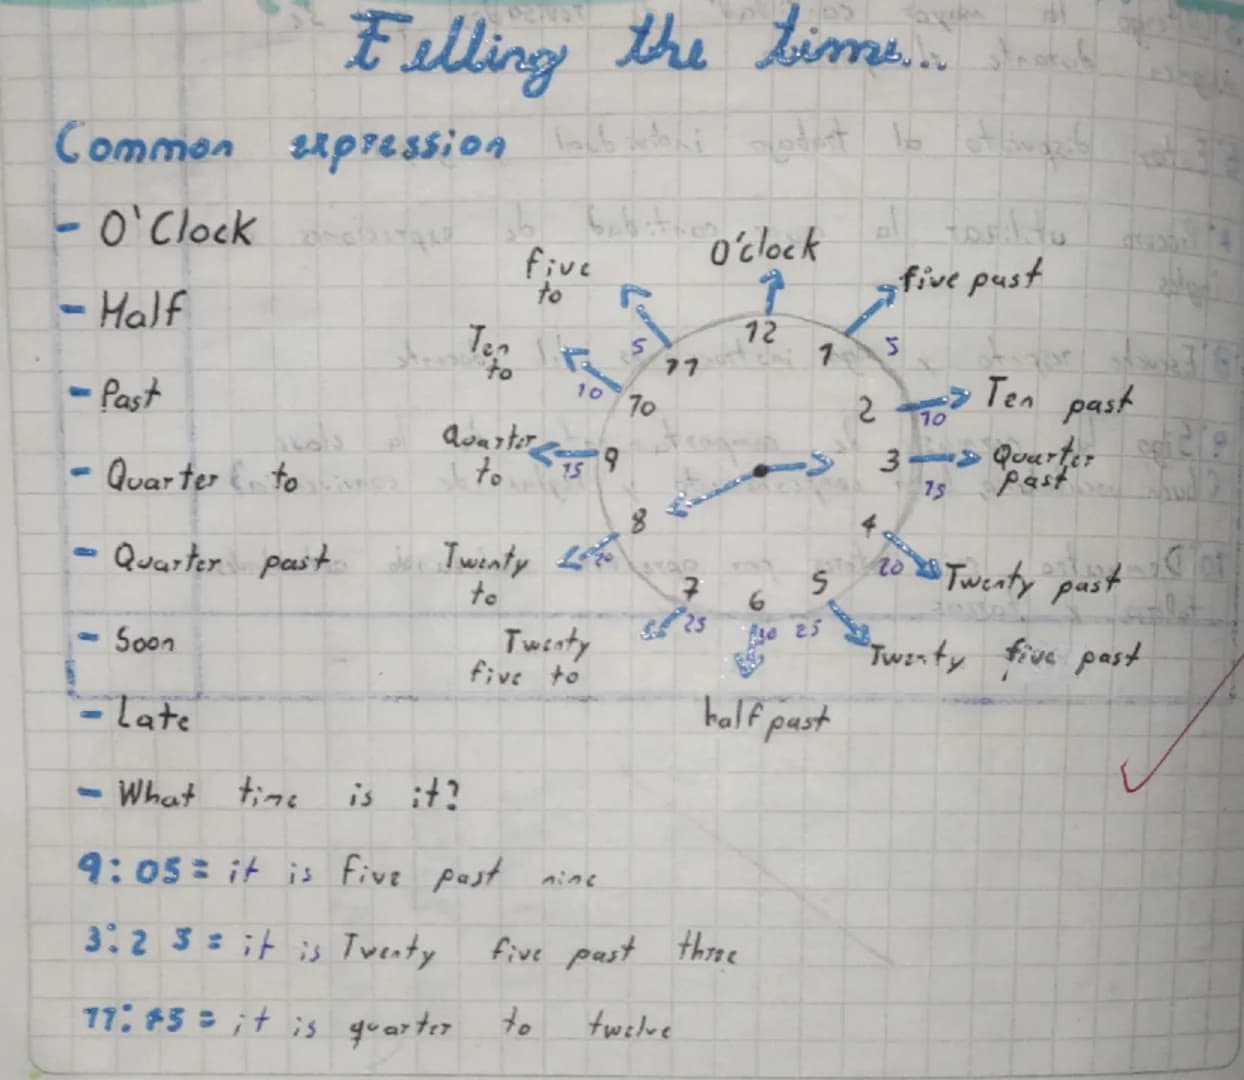 Telling the time...
Common expression
- O'Clock
- Half
- Past
- Quarter to
- Quarter past
- Soon
- Late
- What time is it?
O'clock
12
five past
1
5
Ten past
2
10
Quarter
past
3
15
Twenty past
4
20
Twenty five past
5
25
half past
6
30
Twenty
five to
7
25
Twenty
to
8
20
Quarter
to
9
15
Ten
to
10
10
five
to
11
5
9:05 = it is five past nine
3:25 = it is Twenty five past three
11:45 = it is quarter to twelve